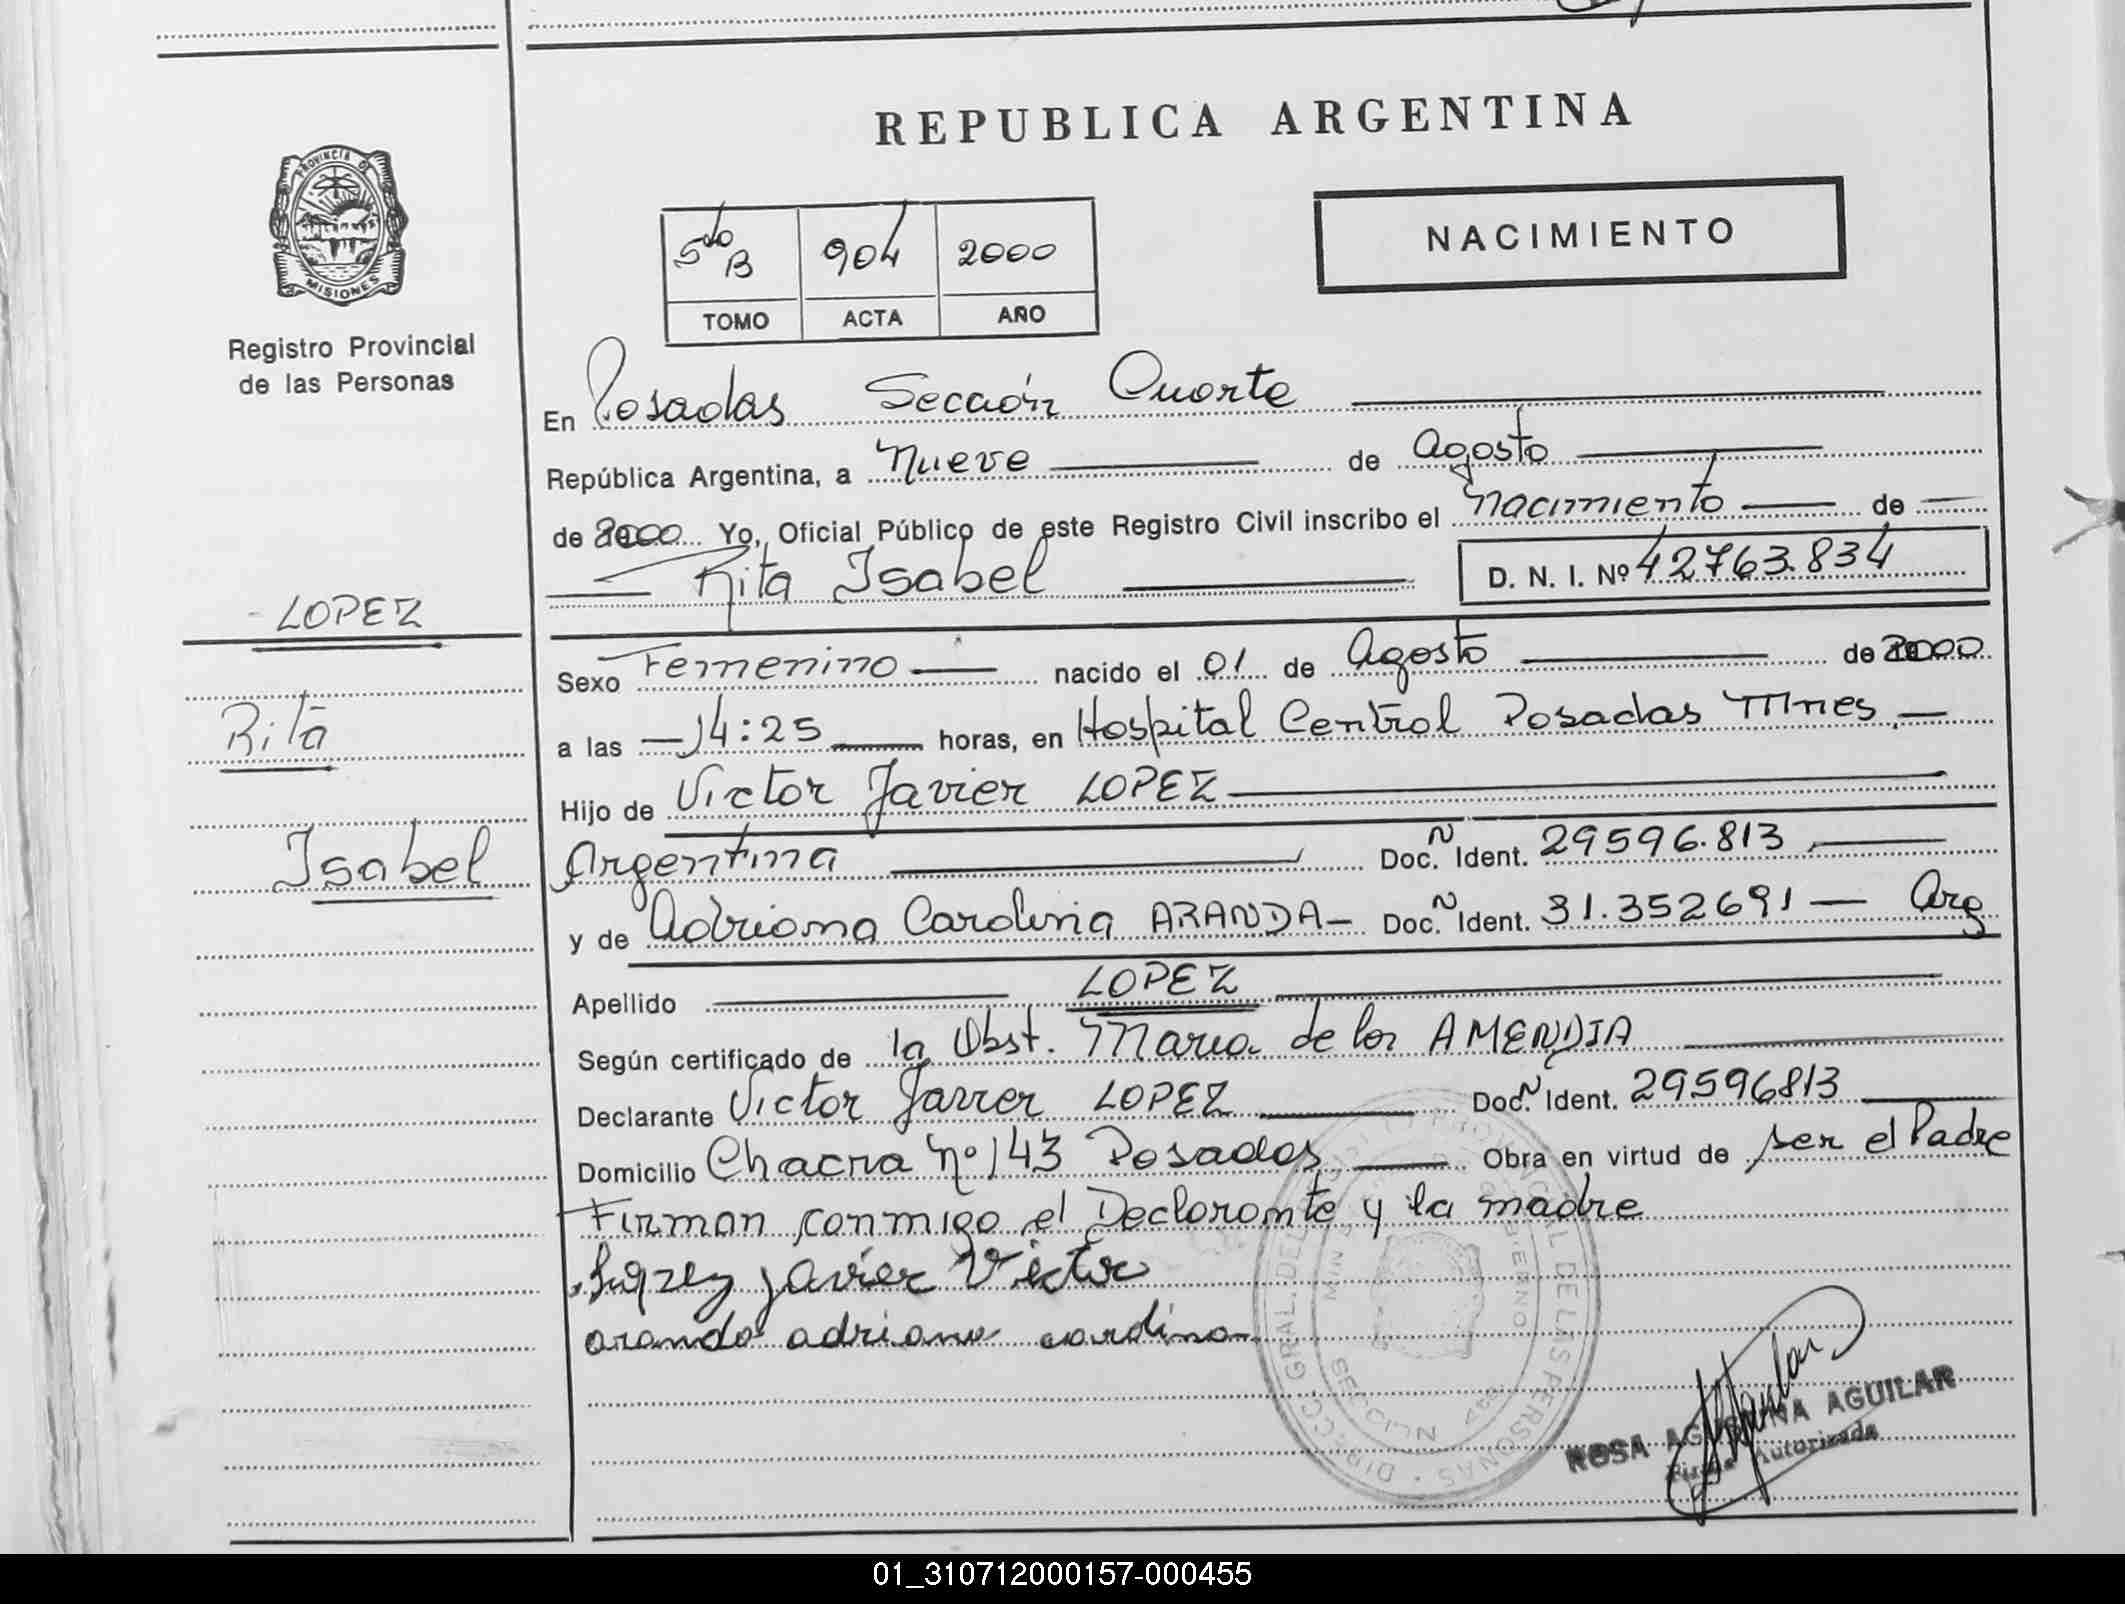 REPUBLICA ARGENTINA
PROVINCIA DE
MISIONES
Registro Provincial
de las Personas
5to B 904 2000
TOMO ACTA AÑO
NACIMIENTO
En Posadas Sección Cuarta
República Argentina, a Nueve de Agosto
de 2000 Yo, Oficial Público de este Registro Civil inscribo el Nacimiento de
Rita Isabel D. N. I. Nº 42763.834
LOPEZ
Rita
Isabel
Sexo Femenino nacido el 01 de Agosto de 2000
a las 14:25 horas, en Hospital Central Posadas Mnes
Hijo de Victor Javier LOPEZ
Argentina Doc. N Ident. 29596.813
y de Adriana Carolina ARANDA Doc. N Ident. 31.352691 Arg
Apellido LOPEZ
Según certificado de la Obst. Maria de los AMENDIA
Declarante Victor Javier LOPEZ Doc. N Ident. 29596813
Domicilio Chacra nº 143 Posadas Obra en virtud de ser el Padre
Firman conmigo el Declarante y la madre
Javier Victor
aranda adriana carolina
ROSA AGUSTINA AGUILAR
Firma Autorizada
01_310712000157-000455